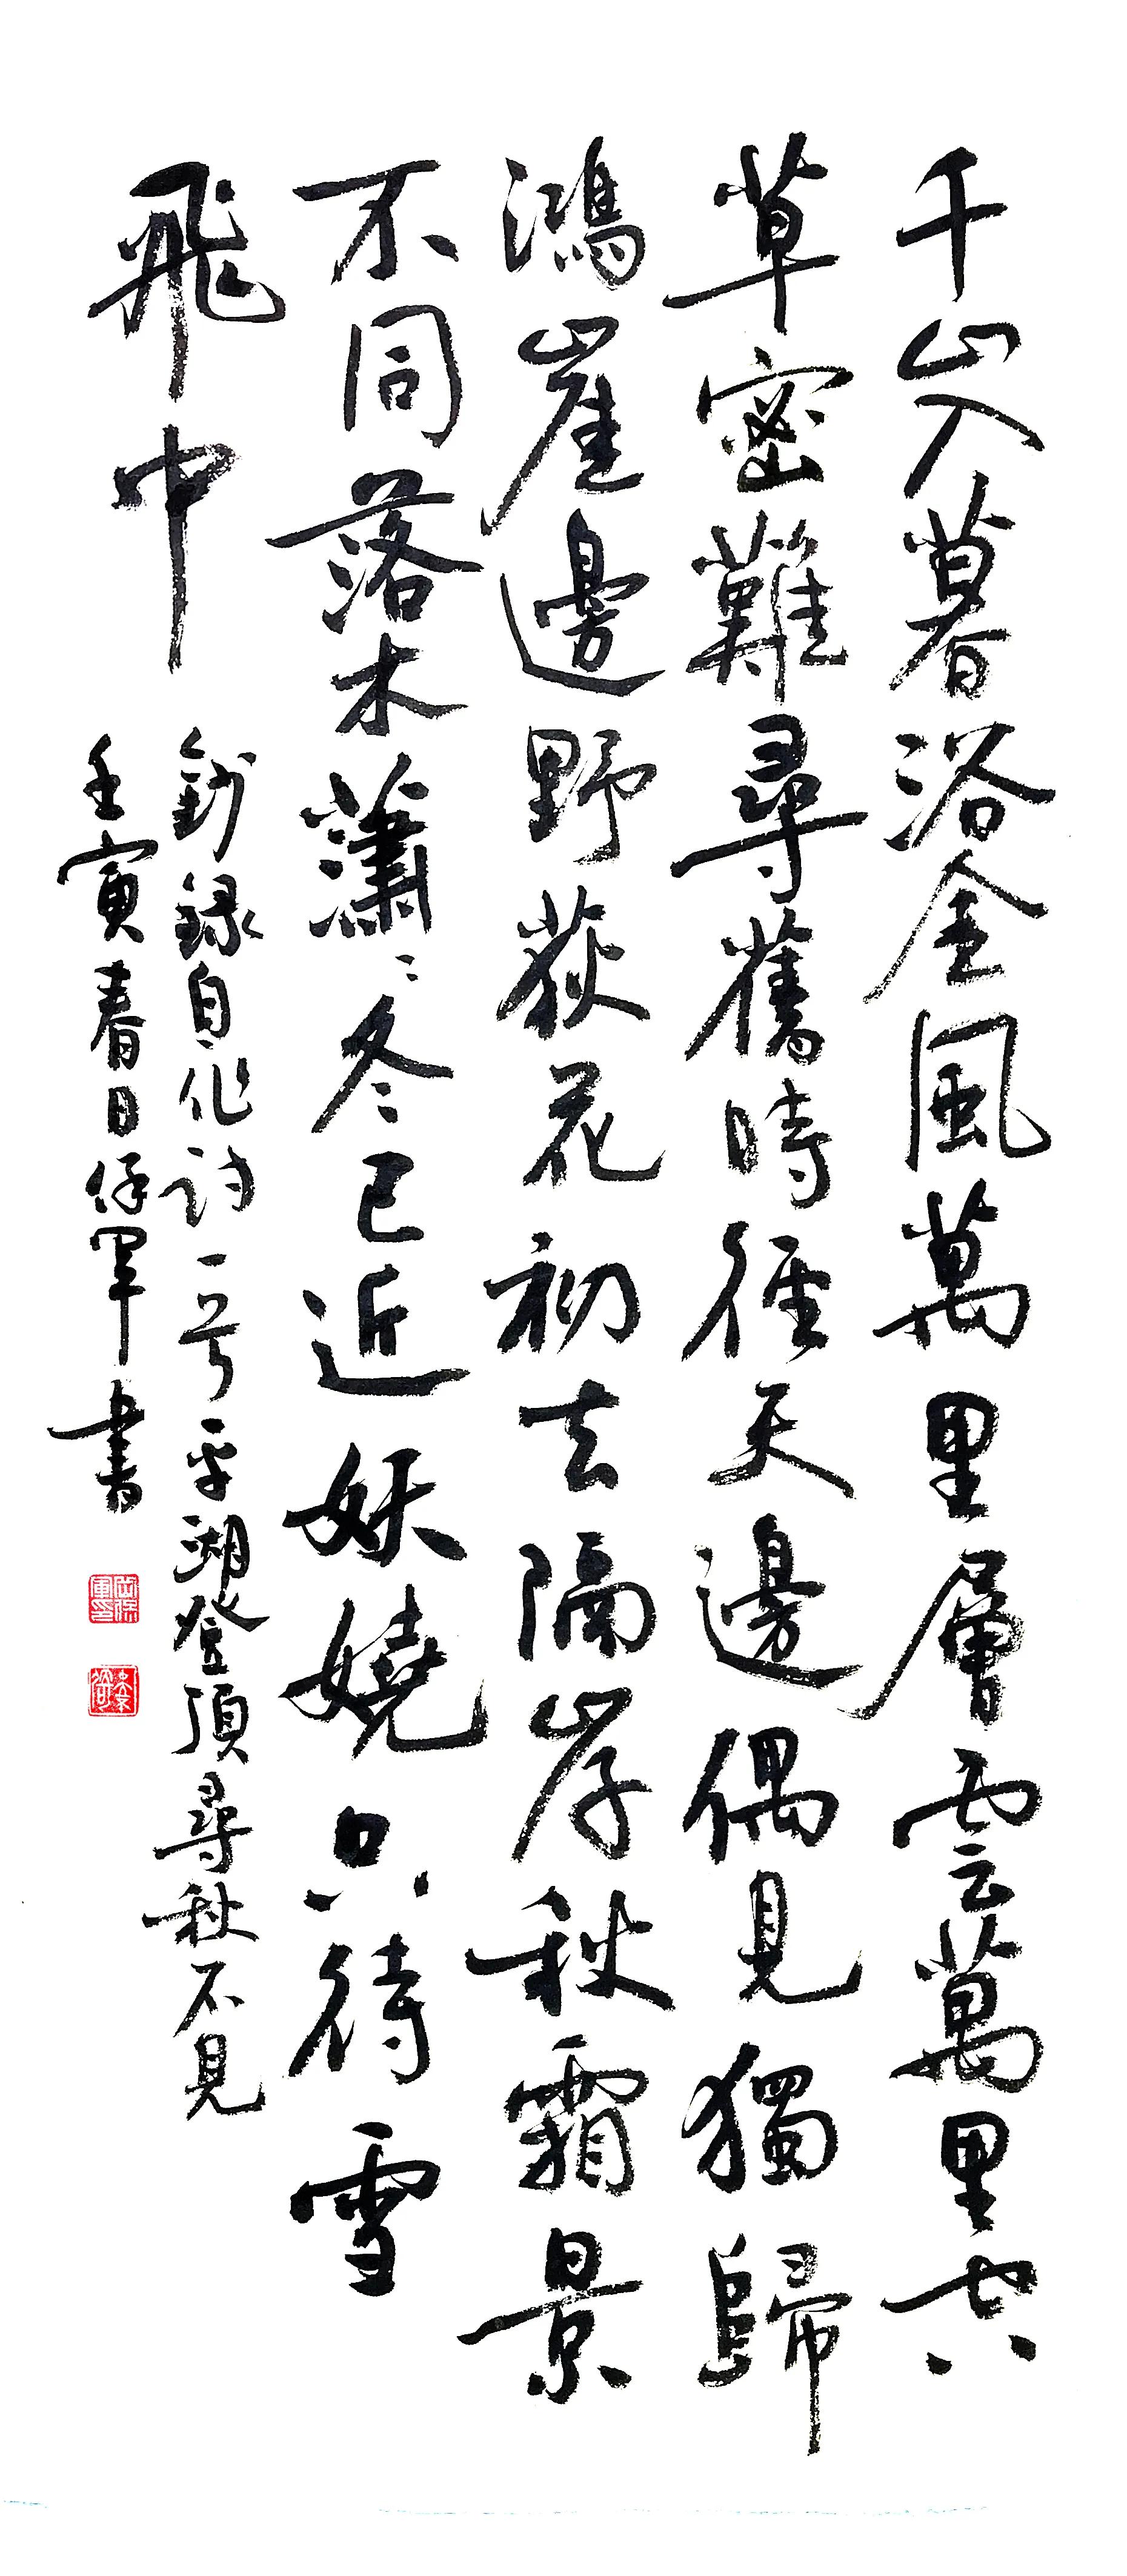 千山入暮浴金風萬里層雲萬里空
草密難尋舊時徑天邊偶見獨歸
鴻崖邊野荻花初去隔岸秋霜景
不同落木蕭〻冬已近妖嬈只待雪
飛中
鈔録自作詩一首平湖登頂尋秋不見
壬寅春日保軍書